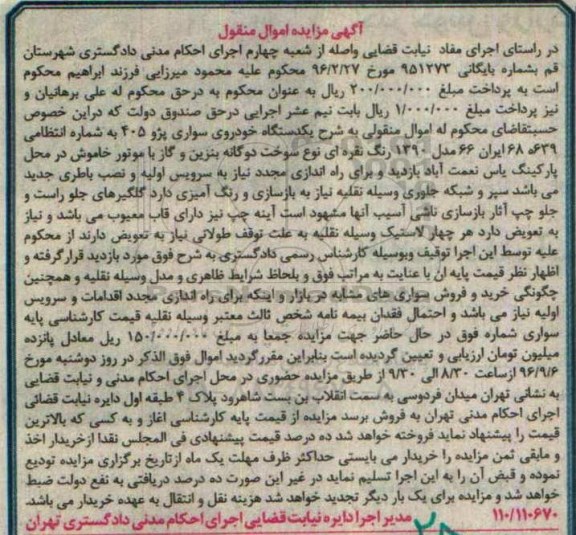 آگهی مزایده اموال منقول
در راستای اجرای مفاد نیابت قضایی واصله از شعبه چهارم اجرای احکام مدنی دادگستری شهرستان
قم بشماره بایگانی ۹۵۱۲۷۳ مورخ ۹۶/۲/۲۷ محکوم علیه محمود میرزایی فرزند ابراهیم محکوم
است به پرداخت مبلغ ۲۰۰/۰۰۰/۰۰۰ ریال به عنوان محکوم به درحق محکوم له علی برهانیان و
نیز پرداخت مبلغ ۱/۰۰۰/۰۰۰ ریال بابت نیم عشر اجرایی درحق صندوق دولت که دراین خصوص
حسبتقاضای محکوم له اموال منقولی به شرح یکدستگاه خودروی سواری پژو ۴۰۵ به شماره انتظامی
۶۸ ایران ۶۶ مدل ۱۳۹۰ رنگ نقره ای نوع سوخت دوگانه بنزین و گاز با موتور خاموش در محل
پارکینگ یاس نعمت آباد بازدید و برای راه اندازی مجدد نیاز به سرویس اولیه و نصب باطری جدید
می باشد سپر و شبکه جلوری وسیله نقلیه نیاز به بازسازی و رنگ آمیزی دارد گلگیرهای جلو راست و
جلو چپ آثار بازسازی ناشی آسیب آنها مشهود است آینه چپ نیز دارای قاب معیوب می باشد و نیاز
به تعویض دارد هر چهار لاستیک وسیله نقلیه به علت توقف طولانی نیاز به تعویض دارند از محکوم
علیه توسط این اجرا توقیف وبوسیله کارشناس رسمی دادگستری به شرح فوق مورد بازدید قرار گرفته و
اظهار نظر قیمت پایه ان با عنایت به مراتب فوق و بلحاظ شرایط ظاهری و مدل وسیله نقلیه و همچنین
چگونگی خرید و فروش سواری های مشابه در بازار و اینکه برای راه اندازی مجدد اقدامات و سرویس
اولیه نیاز می باشد و احتمال فقدان بیمه نامه شخص ثالث معتبر وسیله نقلیه قیمت کارشناسی پایه
سواری شماره فوق در حال حاضر جهت مزایده جمعا به مبلغ ۱۵۰/۰۰۰/۰۰۰ ریل معادل پانزده
میلیون تومان ارزیابی و تعیین گردیده است بنابراین مقرر گردید اموال فوق الذکر در روز دوشنبه مورخ
۹۶/۹/۶ ازساعت ۸/۳۰ الی ۹/۳۰ از طریق مزایده حضوری در محل اجرای احکام مدنی و نیابت قضایی
به نشانی تهران میدان فردوسی به سمت انقلاب بن بست شاهرود پلاک ۴ طبقه اول دایره نیابت قضائی
اجرای احکام مدنی تهران به فروش برسد مزایده از قیمت پایه کارشناسی اغاز و به کسی که بالاترین
قیمت را پیشنهاد نماید فروخته خواهد شد ده درصد قیمت پیشنهادی فی المجلس نقدا ازخریدار اخذ
و مابقی ثمن مزایده را خریدار می بایستی حداکثر ظرف مهلت یک ماه ازتاریخ برگزاری مزایده تودیع
نموده و قبض آن را به این اجرا تسلیم نماید در غیر این صورت ده درصد دریافتی به نفع دولت ضبط
خواهد شد و مزایده برای یک بار دیگر تجدید خواهد شد هزینه نقل و انتقال به عهده خریدار می باشد.
۱۱۰/۱۱۰۶۷۰ مدیر اجرا دایره نیابت قضایی اجرای احکام مدنی دادگستری تهران